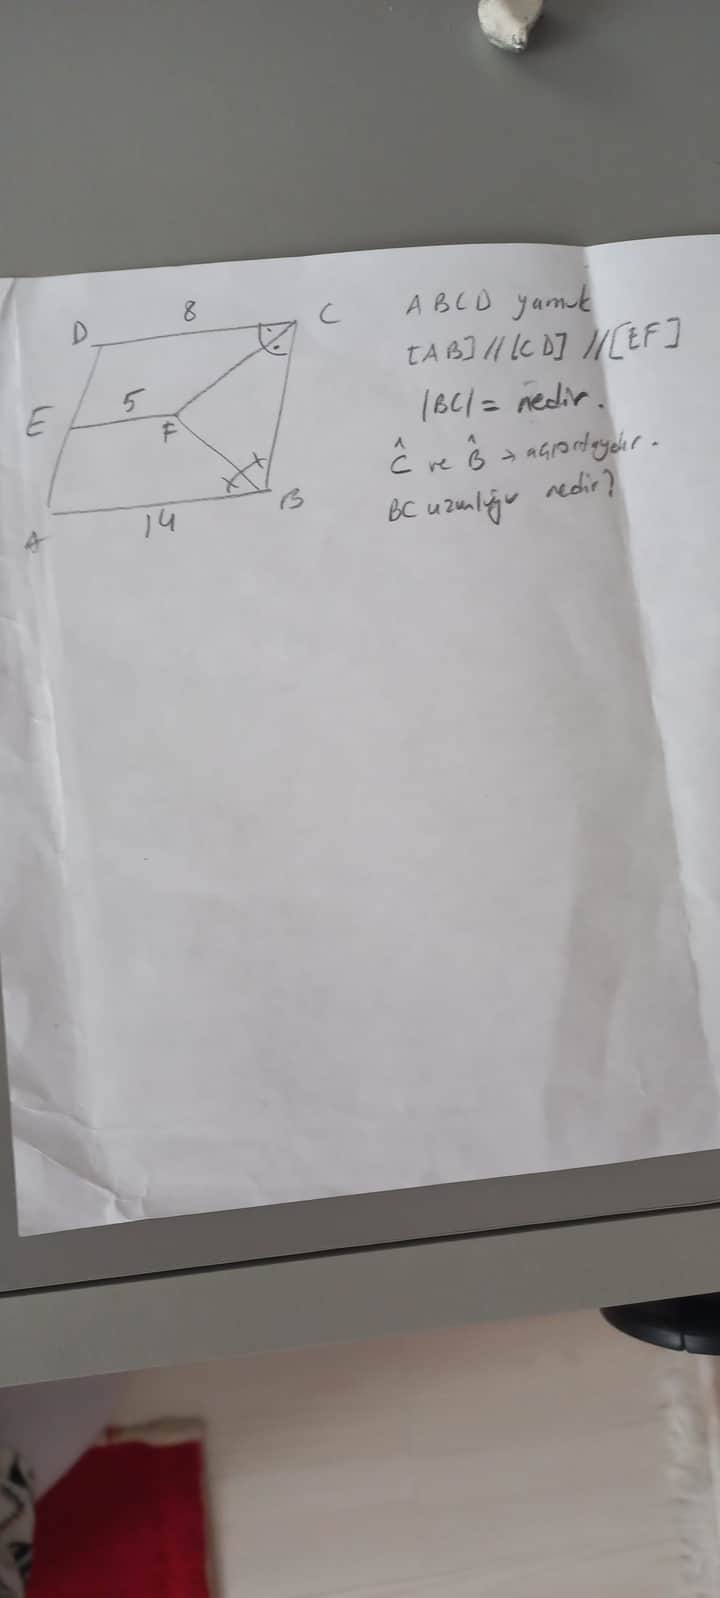 8
D
C
5
E
F
14
A
B
ABCD yamuk
[AB] // [CD] // [EF]
|BC| = nedir.
Ĉ ve B̂ → açıortaydır.
BC uzunluğu nedir?